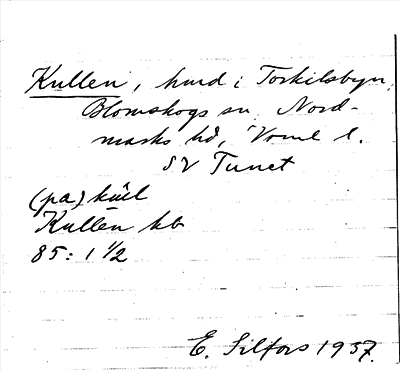 Kullen, hmd i Torkilsbyn,
Blomskogs sn, Nord-
marks hd, Värml l.
SV Tunet
(på)
Kullen kb
85: 1 1/2
E. Silfors 1937.